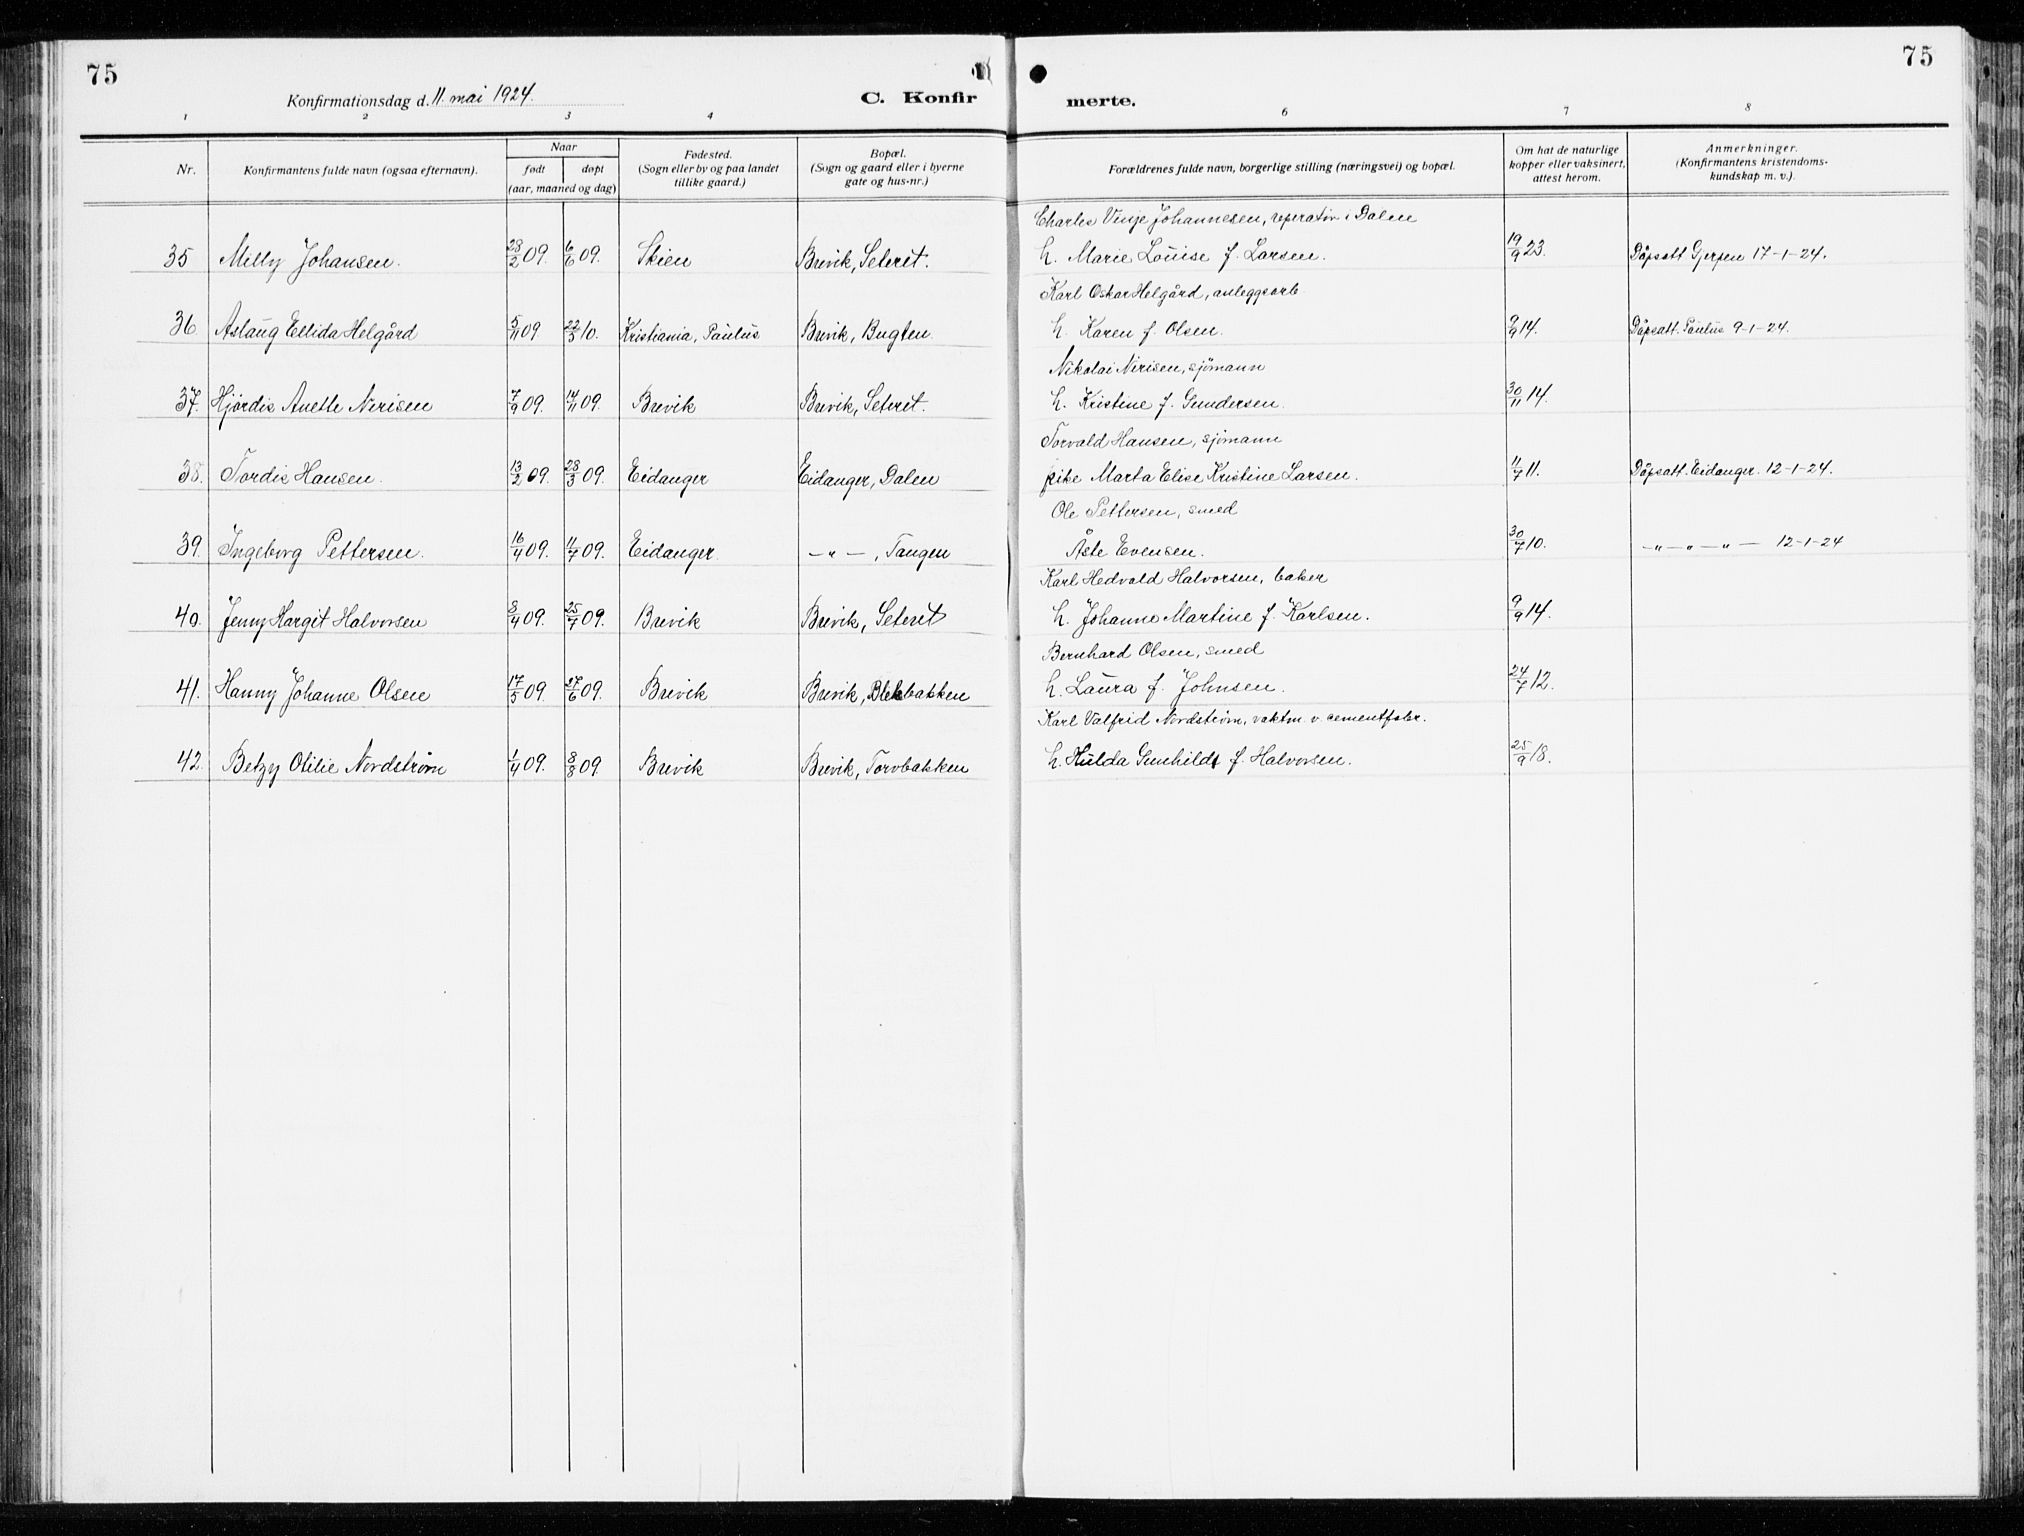 75
75
Konfirmationsdag d. 11. mai 1924.
C. Konfir merte.
1 2 3 4 6 7 8
Nr.
Konfirmantens fulde navn (ogsaa efternavn).
Naar
født døpt
(aar, maaned og dag)
Fødested.
(Sogn eller by og paa landet
tillike gaard.)
Bopæl.
(Sogn og gaard eller i byerne
gate og hus-nr.)
Forældrenes fulde navn, borgerlige stilling (næringsvei) og bopæl.
Om hat de naturlige
kopper eller vaksinert,
attest herom.
Anmerkninger.
(Konfirmantens kristendoms-
kundskap m. v.).
Charles Vinje Johannesen, reperatør i Dalen
35 Milly Johansen. 28/2 09. 6/6 09. Skien Brevik, Seteret. h. Marie Louise f. Larsen. 19/9 23. Dåpsatt Gjerpen 17-1-24.
Karl Oskar Helgård, anleggsarb.
36 Aslaug Ellida Helgård 5/11 09. 22/3 10. Kristiania, Paulus Brevik, Bugten. h. Karen f. Olsen. 9/9 14. Dåpsatt. Paulus 9-1-24.
Nikolai Nerisen, sjømann
37. Hjördis Anette Nerisen 7/9 09. 14/11 09. Brevik Brevik, Seteret. h. Kristine f. Gundersen. 30/11 14.
Torvald Hansen, sjømann
38. Tordis Hansen. 13/2 09. 28/3 09. Eidanger Eidanger, Dalen pike Marta Elise Kristine Larsen. 11/7 11. Dåpsatt. Eidanger. 12-1-24.
Ole Pettersen, smed
39. Ingeborg Pettersen. 16/4 09. 11/7 09. Eidanger — " — , Tangen Åste Evensen. 30/7 10. — " — " — " — 12-1-24
Karl Hedvald Halvorsen, baker
40. Jenny Margit Halvorsen 8/4 09. 25/7 09. Brevik Brevik, Seteret h. Johanne Martine f. Karlsen. 9/9 14.
Bernhard Olsen, smed
41. Hanny Johanne Olsen 17/5 09 27/6 09. Brevik Brevik, Blekbakken h. Laura f. Johnsen. 24/7 12.
Karl Valfrid Nordstrøm, vaktm. v. cementfabr.
42. Betzy Otilie Nordstrøm 1/4 09. 8/8 09. Brevik Brevik, Torvbakken h. Hulda Gunhild f. Halvorsen. 25/9 18.